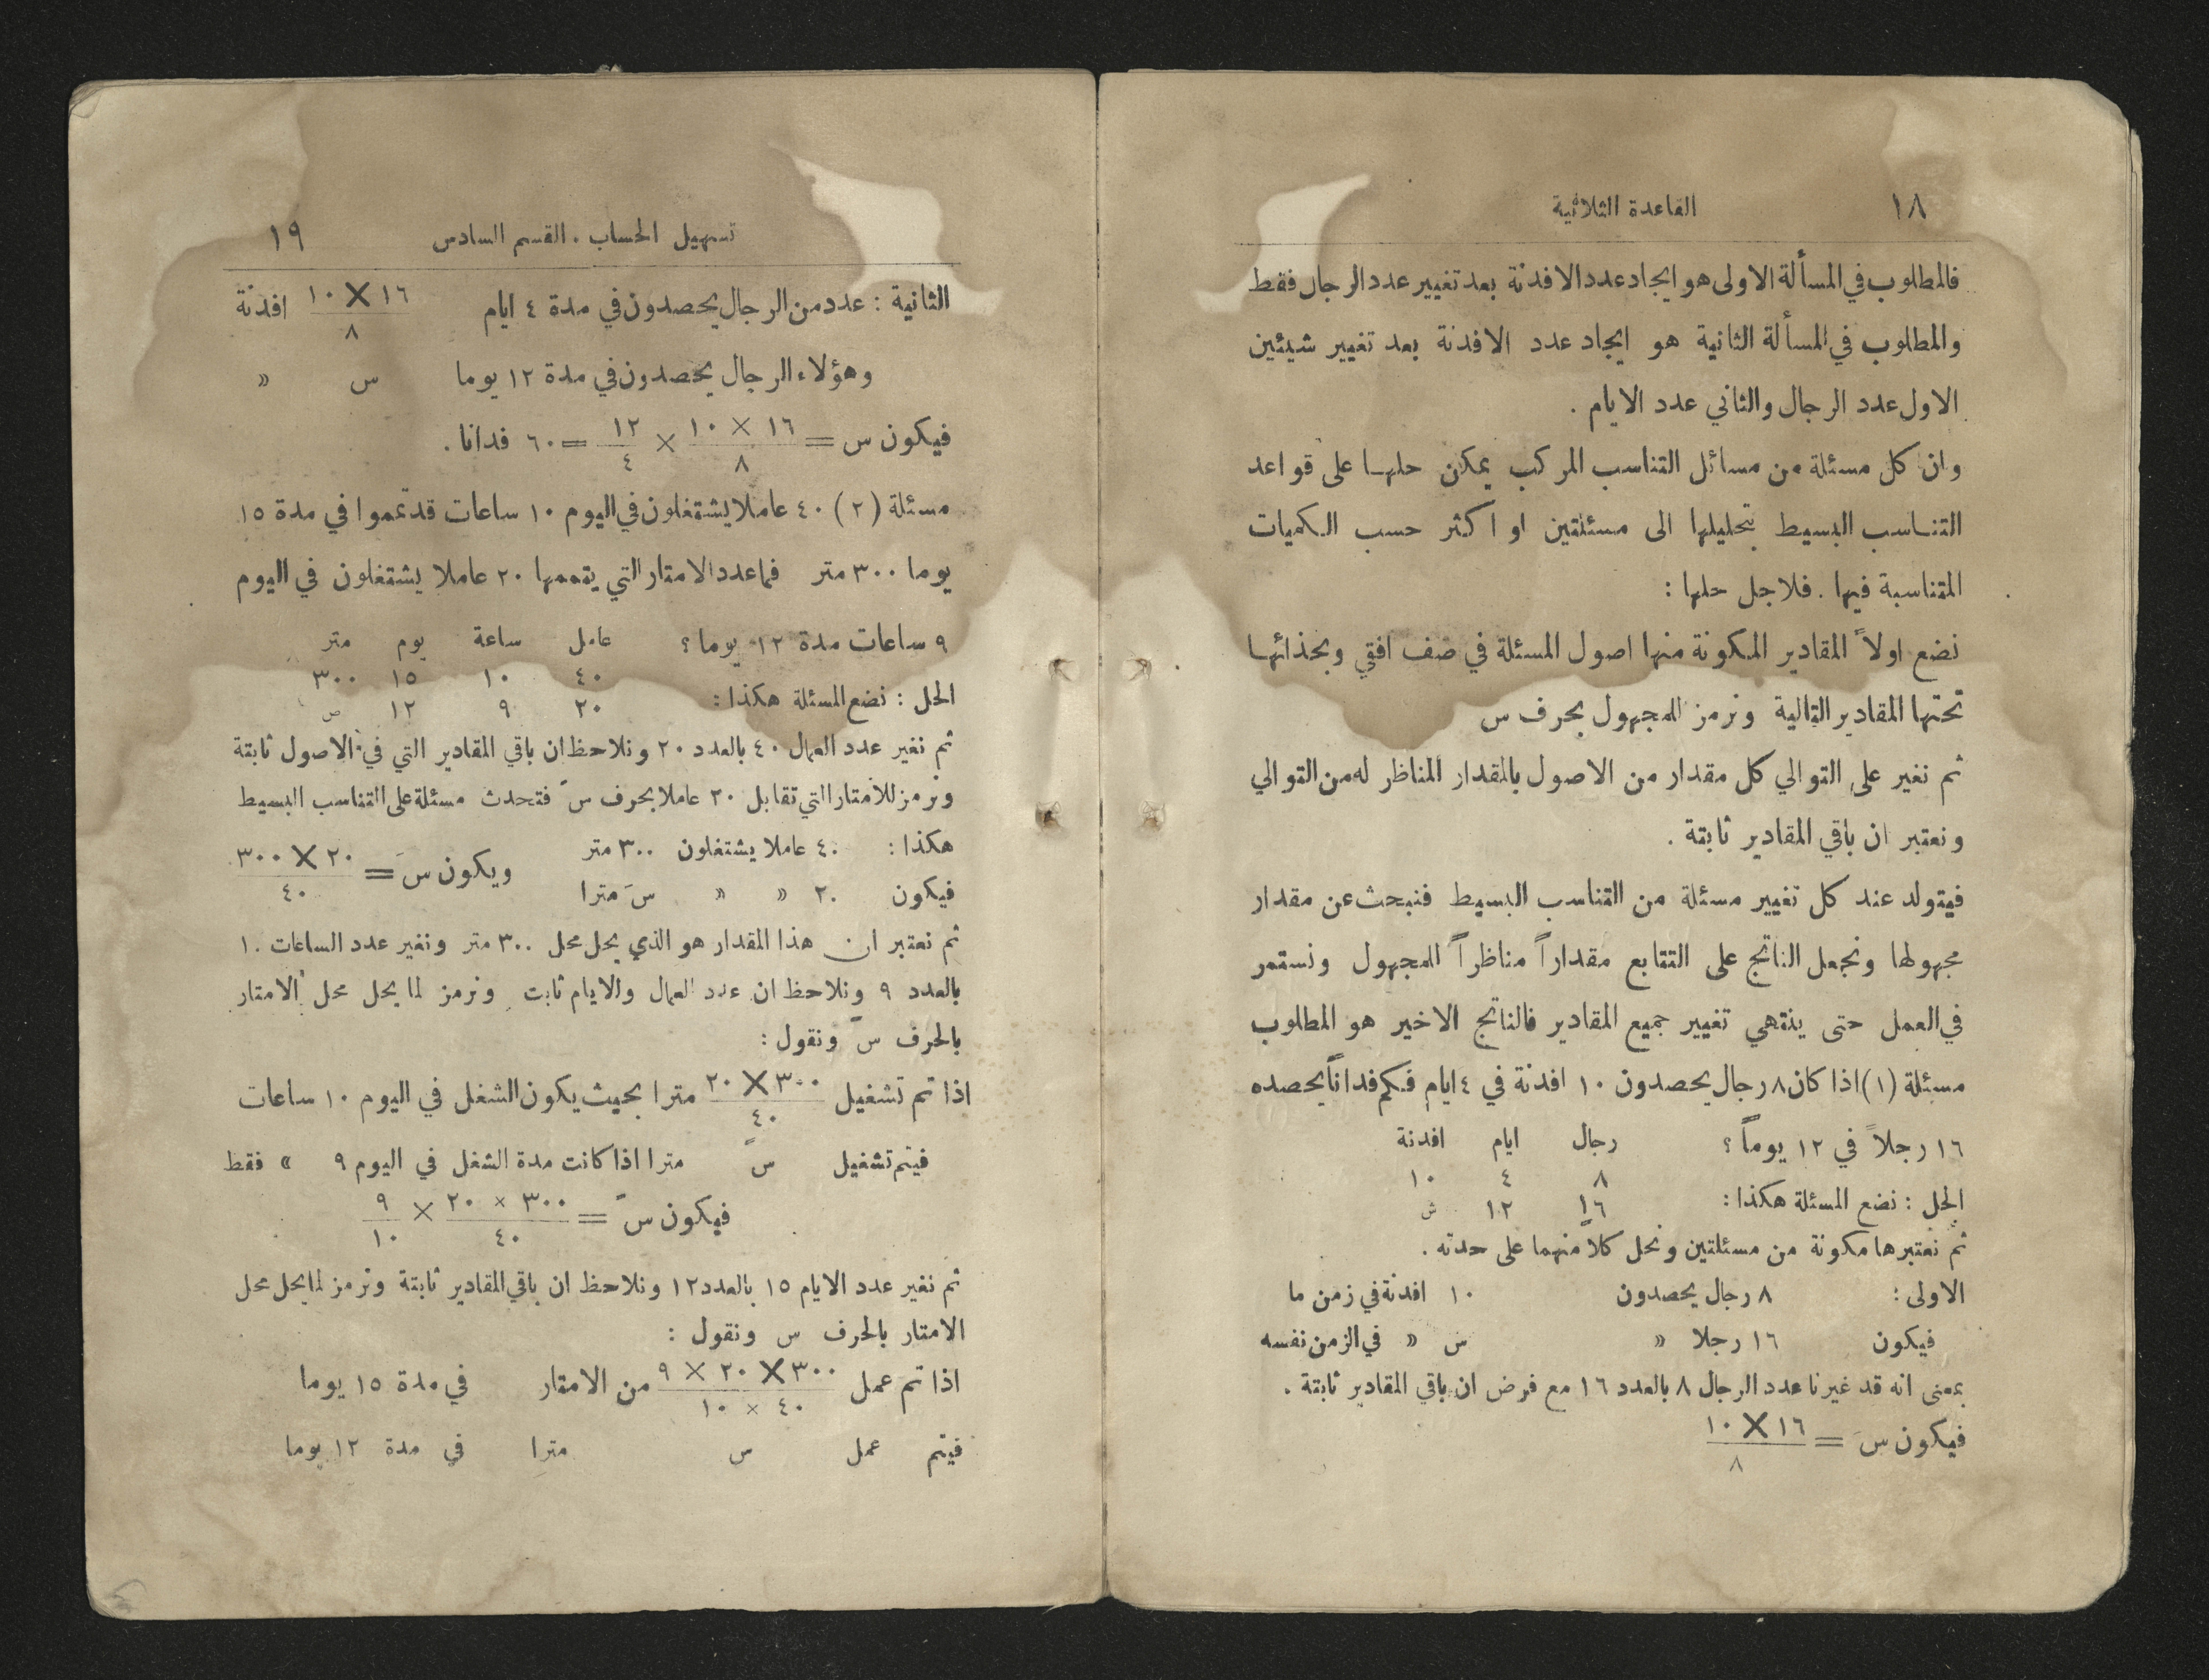 ١٨ القاعدة الثلاثية
فالمطلوب في المسألة الاولى هو ايجاد عدد الافدنة بعد تغيير عدد الرجال فقط
والمطلوب في المسألة الثانية هو ايجاد عدد الافدنة بعد تغيير شيئين
الاول عدد الرجال والثاني عدد الايام .
وان كل مسئلة من مسائل التناسب المركب يمكن حلها على قواعد
التناسب البسيط بتحليلها الى مسئلتين او اكثر حسب الكميات
المتناسبة فيها . فلاجل حلها :
نضع اولاً المقادير المكونة منها اصول المسئلة في صف افقي وبحذائها
تحتها المقادير التالية ونرمز للمجهول بحرف س
ثم نغير على التوالي كل مقدار من الاصول بالمقدار المناظر له من التوالي
ونعتبر ان باقي المقادير ثابتة .
فيتولد عند كل تغيير مسئلة من التناسب البسيط فنبحث عن مقدار
مجهولها ونجعل الناتج على التتابع مقداراً مناظراً للمجهول ونستمر
في العمل حتى ينتهي تغيير جميع المقادير فالناتج الاخير هو المطلوب
مسئلة (١) اذا كان ٨ رجال يحصدون ١٠ افدنة في ٤ ايام فكم فداناً يحصده
١٦ رجلاً في ١٢ يوماً ؟ رجال ايام افدنة
٨ ٤ ١٠
الحل : نضع المسئلة هكذا : ١٦ ١٢ س
ثم نعتبرها مكونة من مسئلتين ونحل كلاً منهما على حدته .
الاولى : ٨ رجال يحصدون ١٠ افدنة في زمن ما
فيكون ١٦ رجلا » سَ » في الزمن نفسه
بمعنى انه قد غيرنا عدد الرجال ٨ بالعدد ١٦ مع فرض ان باقي المقادير ثابتة .
فيكون سَ = ١٦ × ١٠
٨
تسهيل الحساب . القسم السادس ١٩
الثانية : عدد من الرجال يحصدون في مدة ٤ ايام ١٦ × ١٠ افدنة
٨
وهؤلاء الرجال يحصدون في مدة ١٢ يوما س »
فيكون س = ١٦ × ١٠ × ١٢ = ٦٠ فدانا .
٨ ٤
مسئلة (٢) ٤٠ عاملا يشتغلون في اليوم ١٠ ساعات قد تمموا في مدة ١٥
يوما ٣٠٠ متر فما عدد الامتار التي يتممها ٢٠ عاملا يشتغلون في اليوم
٩ ساعات مدة ١٢ يوما ؟ عامل ساعة يوم متر
٤٠ ١٠ ١٥ ٣٠٠
الحل : نضع المسئلة هكذا : ٢٠ ٩ ١٢ س
ثم نغير عدد العمال ٤٠ بالعدد ٢٠ ونلاحظ ان باقي المقادير التي في الاصول ثابتة
ونرمز للامتار التي تقابل ٢٠ عاملا بحرف سَ فتحدث مسئلة على التناسب البسيط
هكذا : ٤٠ عاملا يشتغلون ٣٠٠ متر
فيكون ٢٠ » » سَ مترا
ويكون سَ = ٢٠ × ٣٠٠
٤٠
ثم نعتبر ان هذا المقدار هو الذي يحل محل ٣٠٠ متر ونغير عدد الساعات ١٠
بالعدد ٩ ونلاحظ ان عدد العمال والايام ثابت ونرمز لما يحل محل الامتار
بالحرف سً ونقول :
اذا تم تشغيل ٣٠٠ × ٢٠ مترا بحيث يكون الشغل في اليوم ١٠ ساعات
٤٠
فيتم تشغيل سً مترا اذا كانت مدة الشغل في اليوم ٩ » فقط
فيكون سً = ٣٠٠ × ٢٠ × ٩
٤٠ ١٠
ثم نغير عدد الايام ١٥ بالعدد ١٢ ونلاحظ ان باقي المقادير ثابتة ونرمز لما يحل محل
الامتار بالحرف س ونقول :
اذا تم عمل ٣٠٠ × ٢٠ × ٩ من الامتار في مدة ١٥ يوما
٤٠ × ١٠
فيتم عمل س مترا في مدة ١٢ يوما